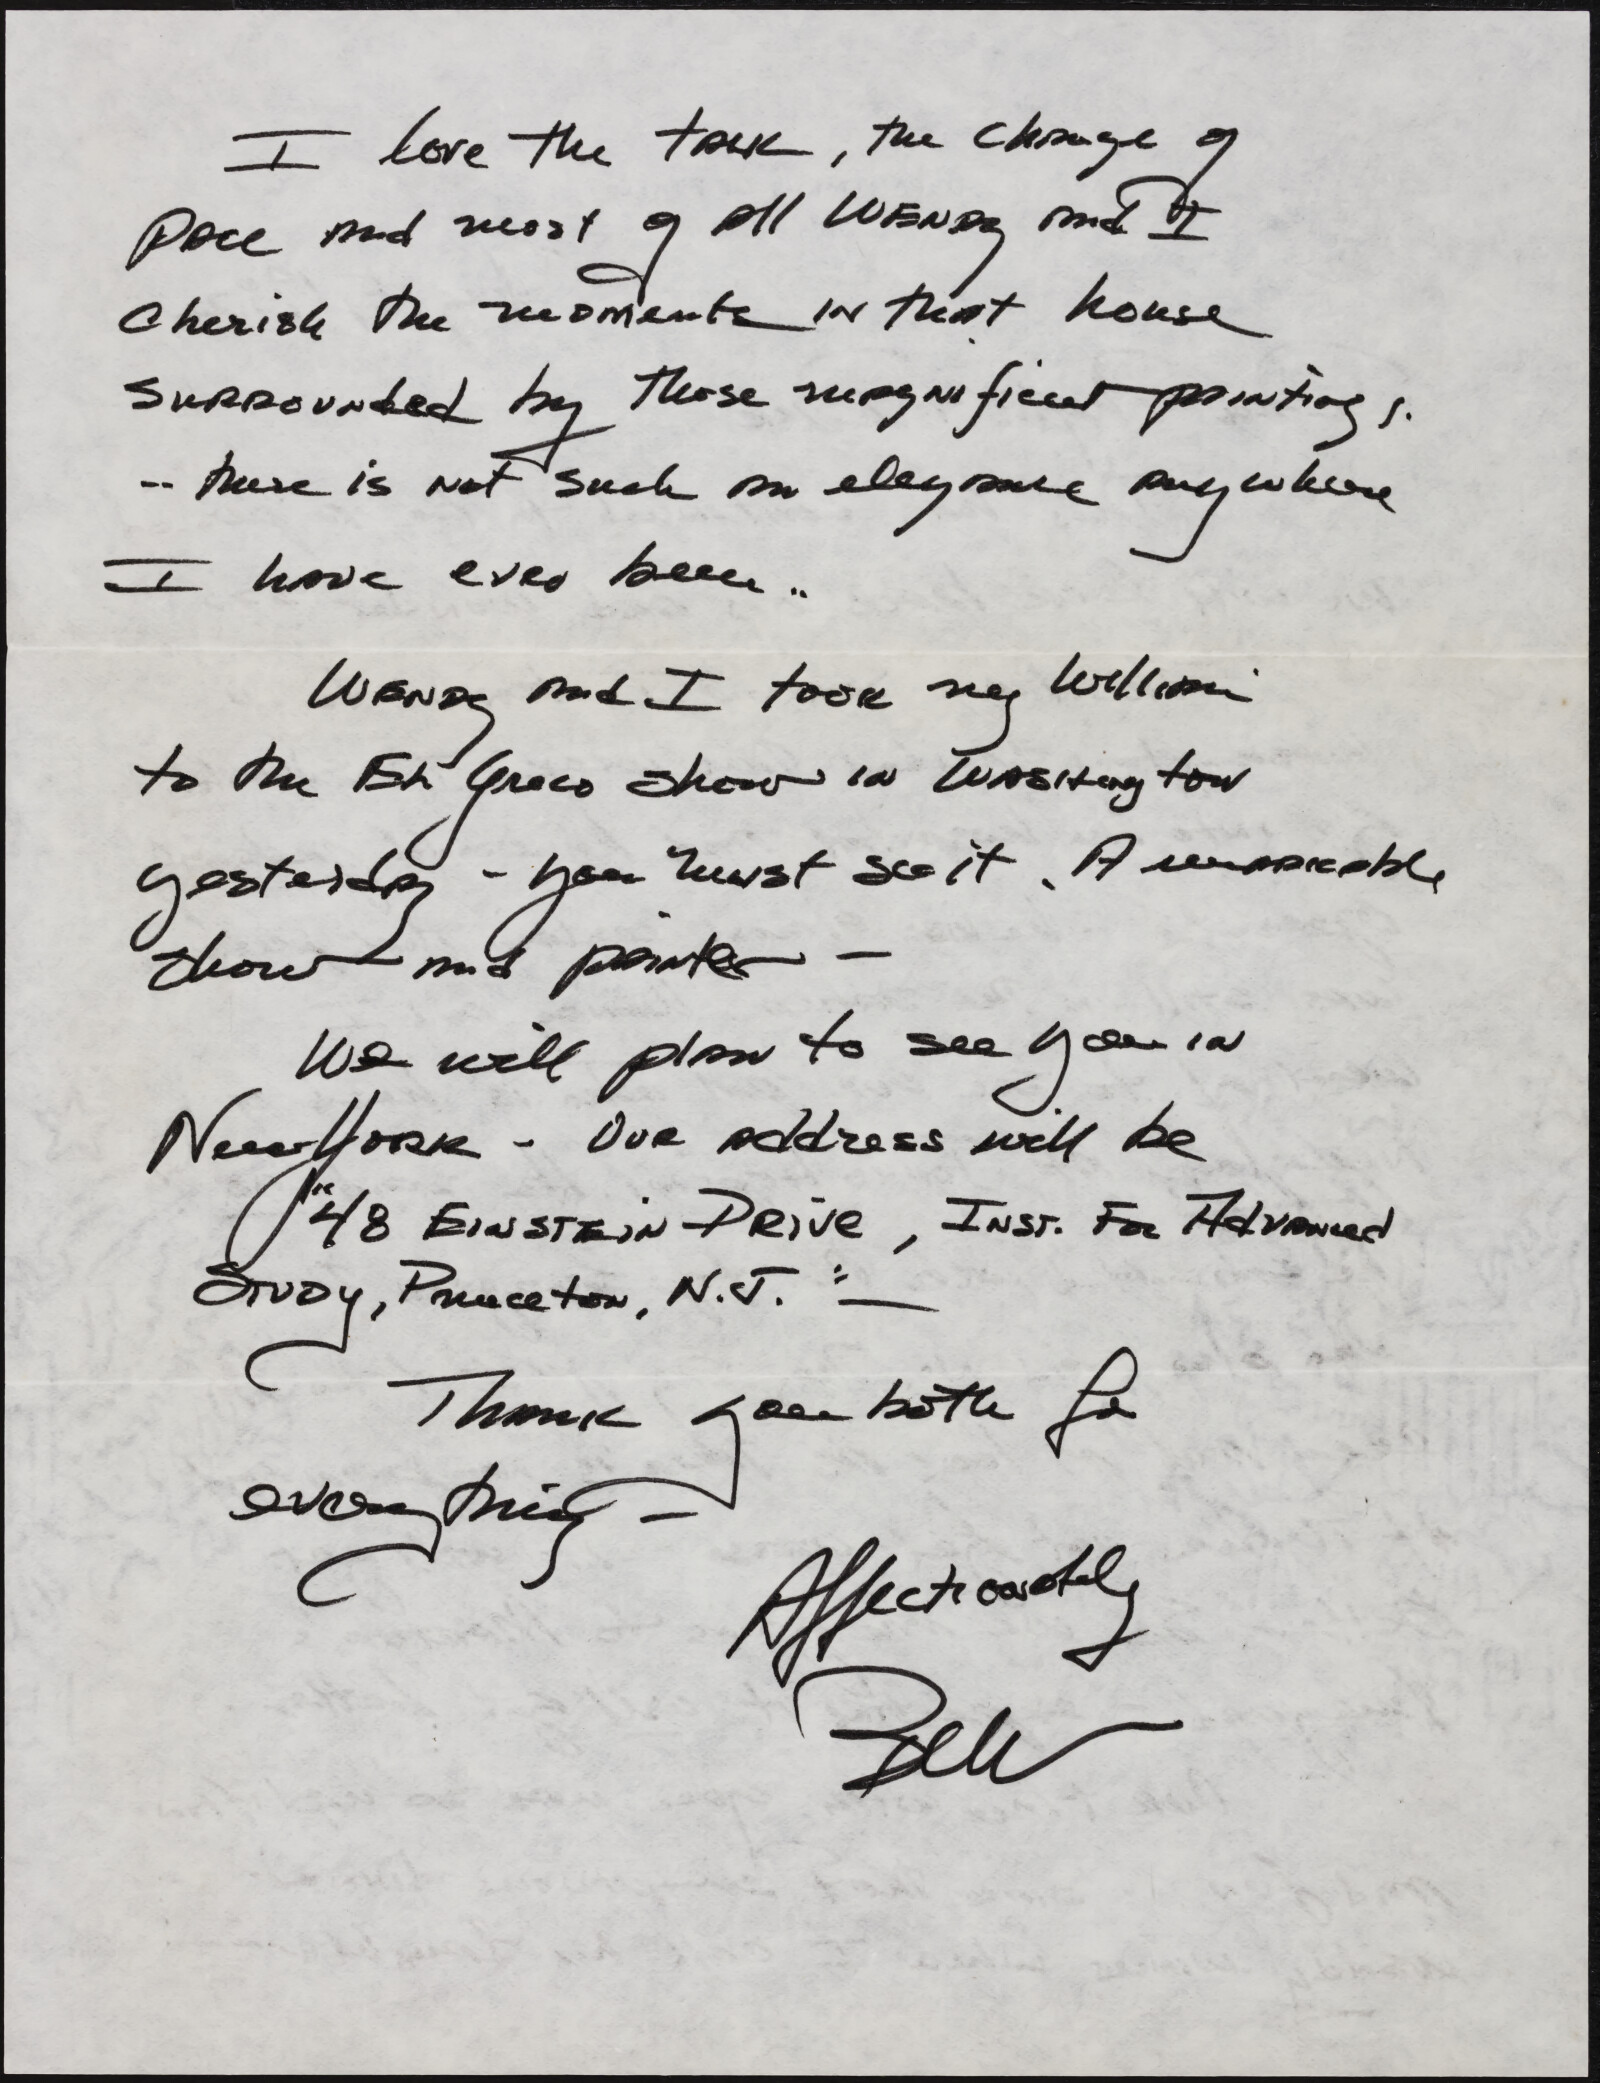 I love the talk, the change of
pace and most of all Wendy and I
cherish the moments in that house
surrounded by those magnificent paintings.
-- there is not such an elegance anywhere
I have ever been..
Wendy and I took my William
to the El Greco show in Washington
yesterday - you must see it. A remarkable
show and painter -
We will plan to see you in
New York - Our address will be
"48 Einstein Drive, Inst. For Advanced
Study, Princeton, N.J." -
Thank you both for
everything -
Affectionately
Bill